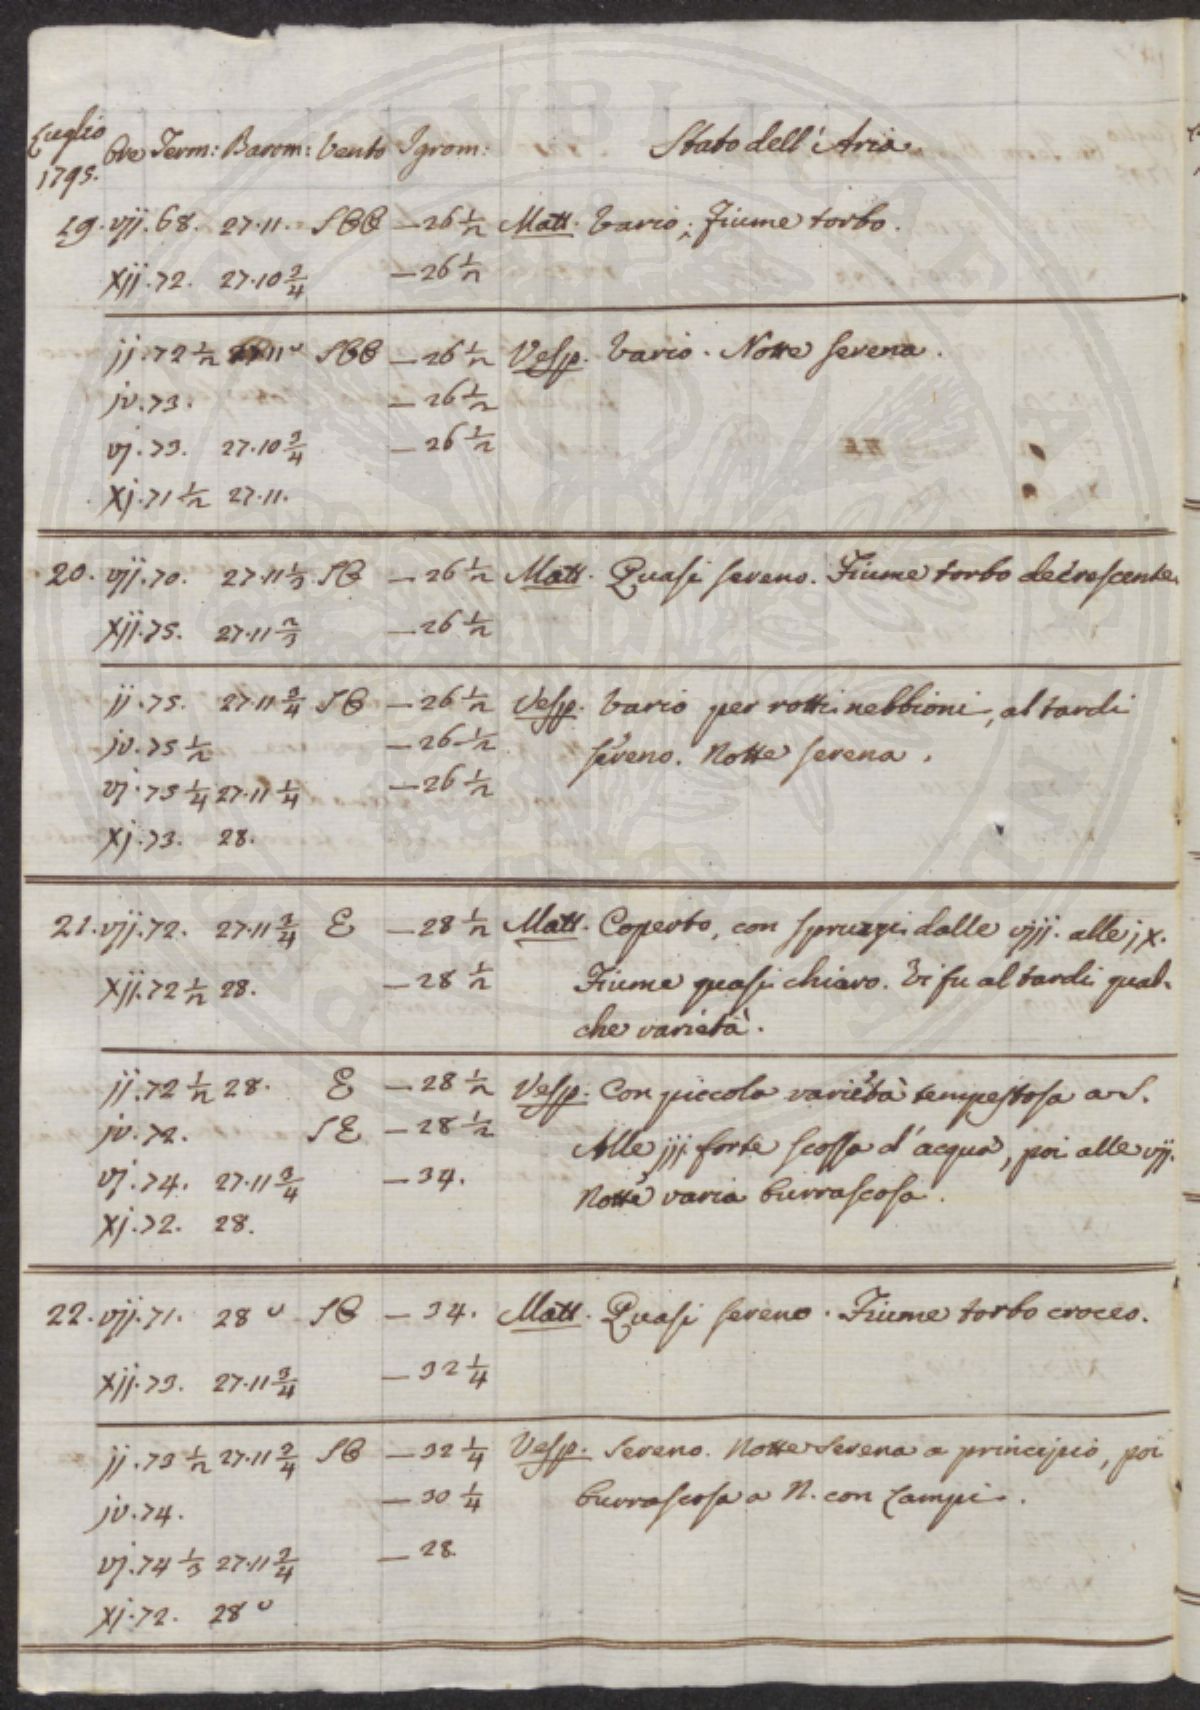 Luglio 1795. Ore Term: Barom: Vento Igrom: Stato dell'Aria
19. vij. 68. 27.11. SOO — 26 1/2 Matt. Vario; Fiume torbo.
xij. 72. 27.10 3/4 — 26 1/2
ij. 72 1/2 27.11 SOO — 26 1/2 Vesp. Vario. Notte serena.
iv. 73. — 26 1/2
vj. 73. 27.10 3/4 — 26 1/2
xj. 71 1/2 27.11.
20. vij. 70. 27.11 1/3 SO — 26 1/2 Matt. Quasi sereno. Fiume torbo decrescente.
xij. 75. 27.11 2/3 — 26 1/2
ij. 75. 27.11 3/4 SO — 26 1/2 Vesp. Vario per rotti nebbioni, al tardi
iv. 75 1/2 — 26 1/2 sereno. Notte serena.
vj. 75 1/4 27.11 1/4 — 26 1/2
xj. 73. 28.
21. vij. 72. 27.11 3/4 E — 28 1/2 Matt. Coperto, con spruzzi dalle viij. alle ix.
xij. 72 1/2 28. — 28 1/2 Fiume quasi chiaro. Vi fu al tardi qual-
che varietà.
ij. 72 1/2 28. E — 28 1/2 Vesp. Con piccola varietà tempestosa a S.
iv. 72. SE — 28 1/2 Alle iij. forte scossa d'acqua, poi alle vij.
vj. 74. 27.11 3/4 — 34. Notte varia burrascosa.
xj. 72. 28.
22. vij. 71. 28 SO — 34. Matt. Quasi sereno. Fiume torbo croceo.
xij. 73. 27.11 3/4 — 32 1/4
ij. 73 1/2 27.11 3/4 SO — 32 1/4 Vesp. Sereno. Notte serena a principio, poi
iv. 74. — 30 1/4 burrascosa a N. con lampi.
vj. 74 1/3 27.11 3/4 — 28.
xj. 72. 28